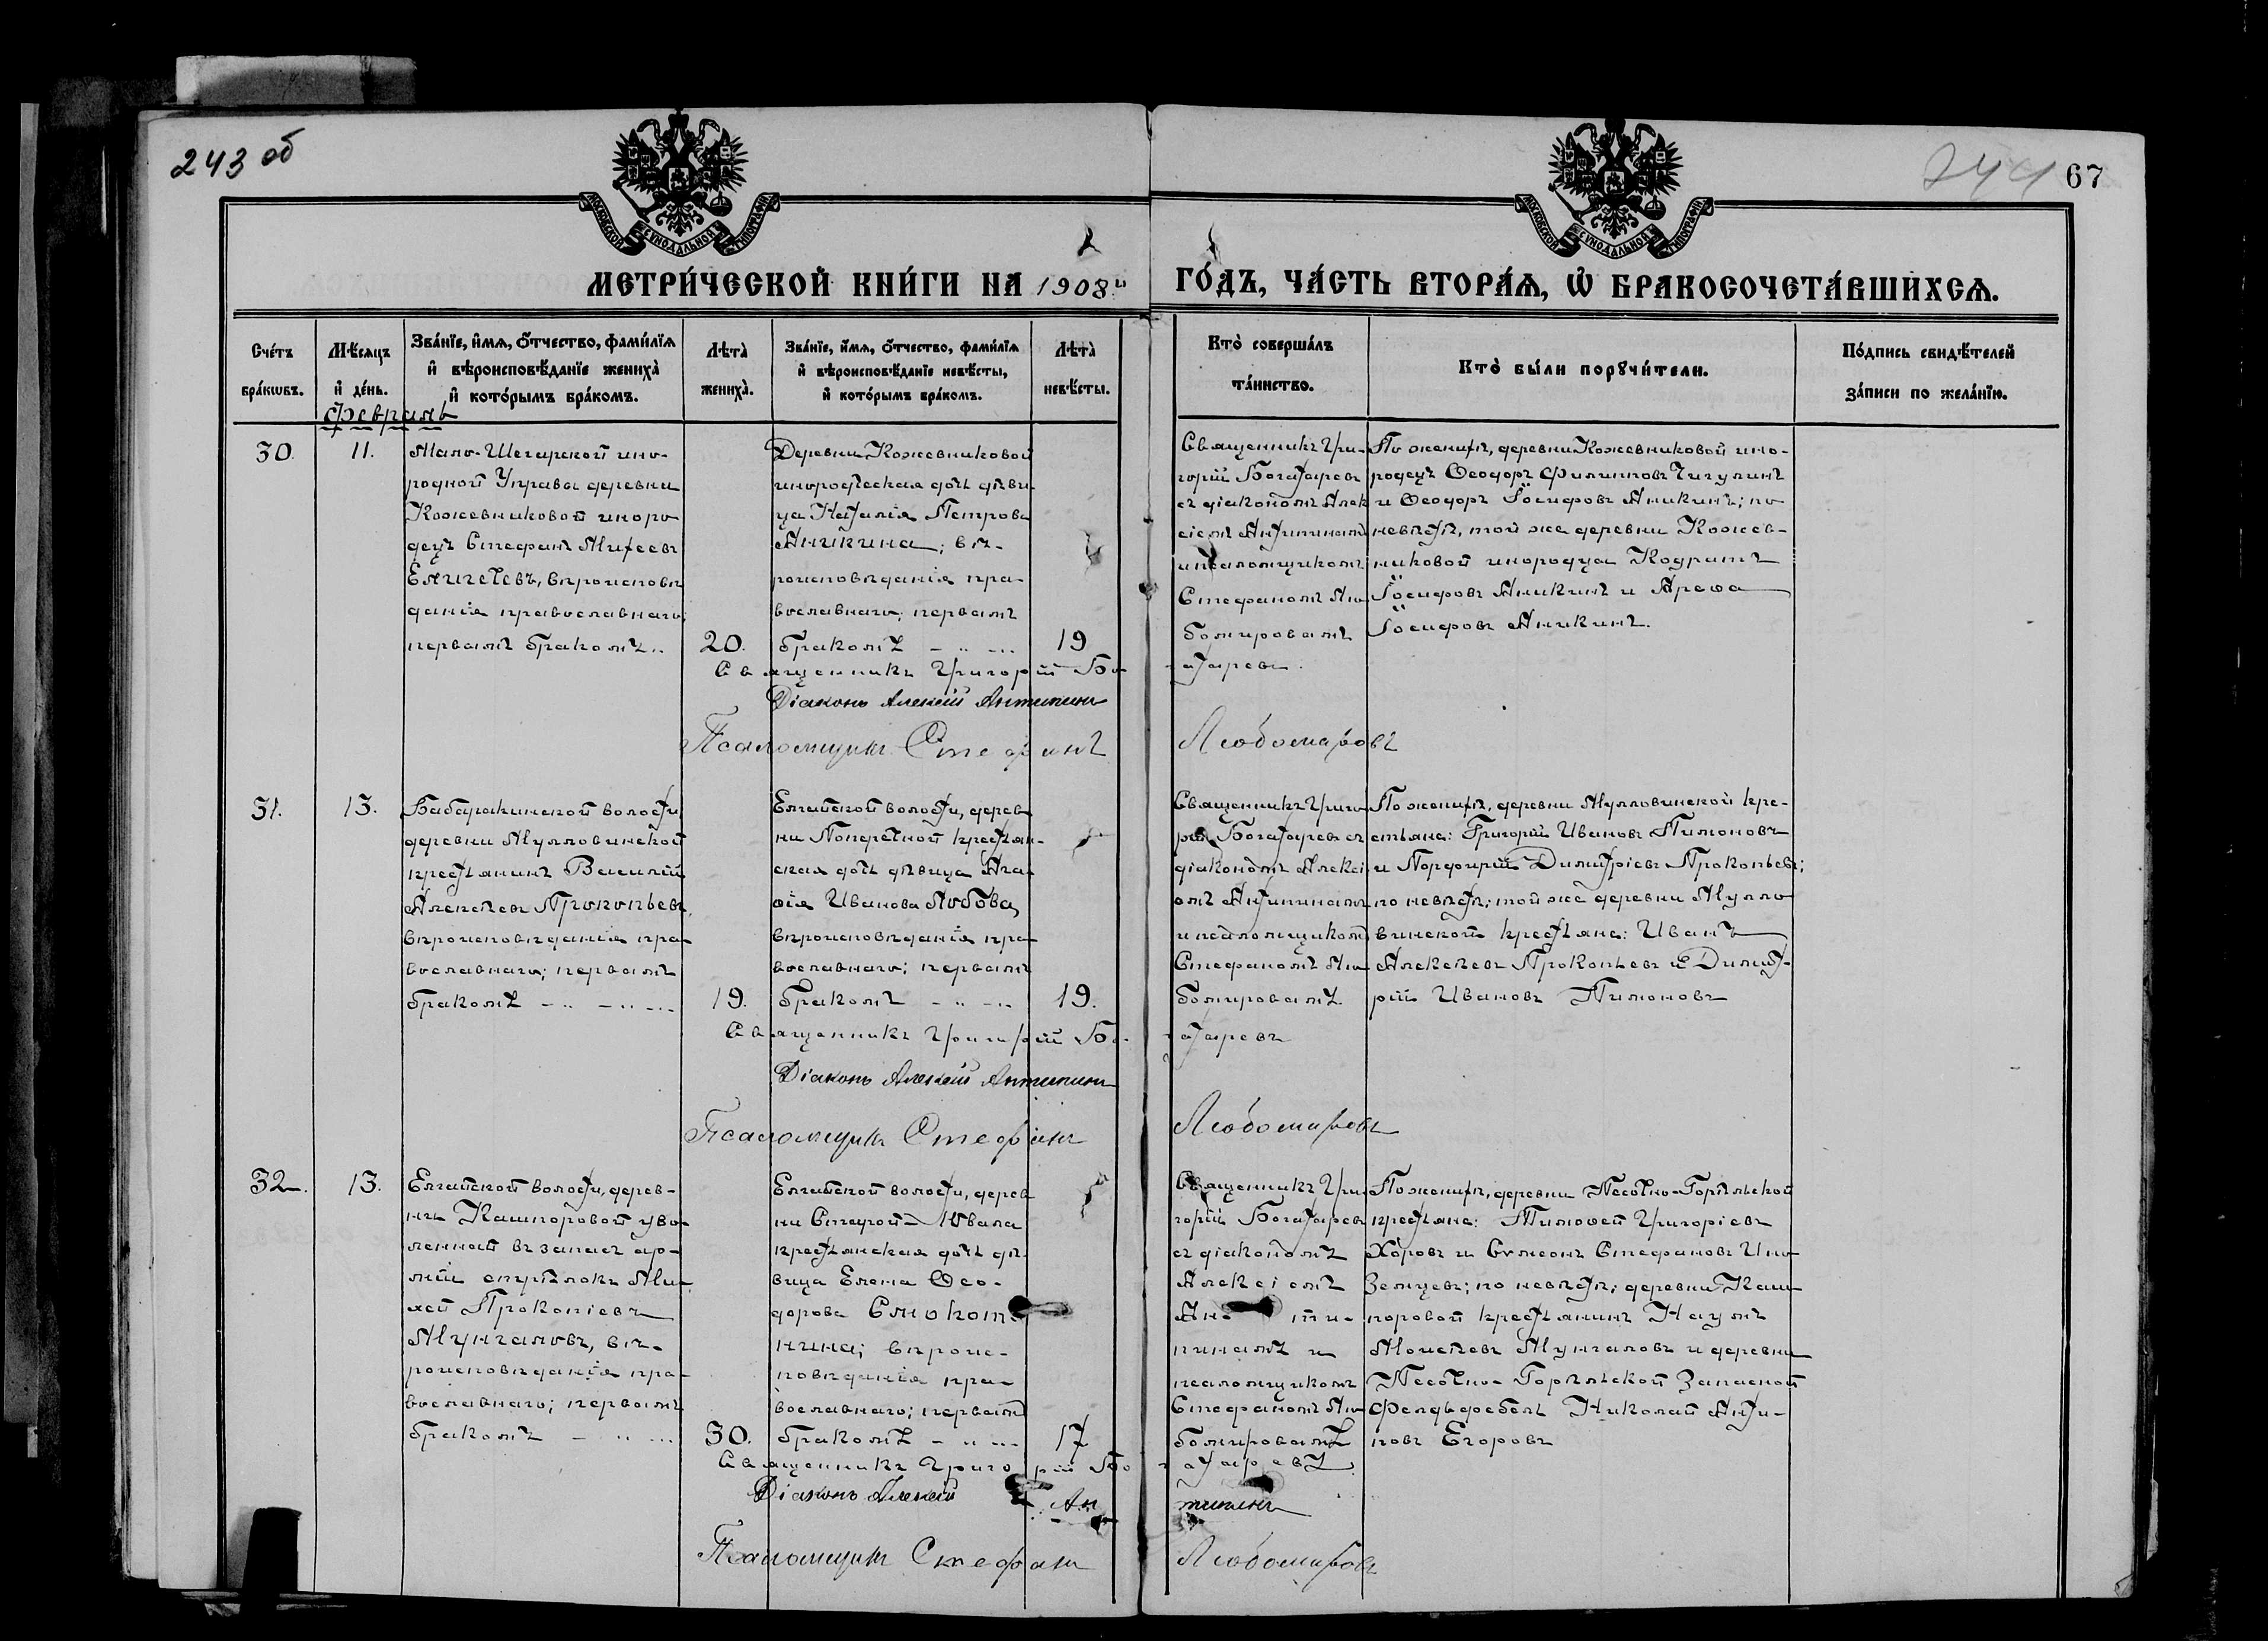 243 об
244
67
МОСКОВСКОЙ СѴНОДАЛЬНОЙ ТИПОГРАФІИ
МОСКОВСКОЙ СѴНОДАЛЬНОЙ ТИПОГРАФІИ
МЕТРИ́ЧЕСКОЙ КНИ́ГИ НА 1908й ГО́ДЪ, ЧА́СТЬ ВТОРА́Ѧ, Ѡ҆ БРАКОСОЧЕТА́ВШИХСѦ.
Сче́тъ бра́кѡвъ.
Мѣ́сѧцъ и҆ де́нь.
Зва́нїе, и҆́мѧ, ѻ҆́тчество, фами́лїѧ и҆ вѣроисповѣ́данїе жениха̀ и҆ кото́рымъ бра́комъ.
Лѣта̀ жениха̀.
Зва́нїе, и҆́мѧ, ѻ҆́тчество, фами́лїѧ и҆ вѣроисповѣ́данїе невѣ́сты, и҆ кото́рымъ бра́комъ.
Лѣта̀ невѣ́сты.
Кто̀ соверша́лъ та́инство.
Кто̀ бы́ли порꙋчи́тели.
По́дпись свидѣ́телей за́писи по жела́нїю.
Февраль
30.
11.
Мало-Шегарской ино-
родной Управы деревни
Кожевниковой иноро
децъ Стефанъ Михеевъ
Елигечевъ, вѣроисповѣ
данія православнаго;
первымъ бракомъ..
20.
Деревни Кожевниковой
инородческая дочь дѣви
ца Наталія Петрова
Аникина; вѣ-
роисповѣданія пра-
вославнаго; первымъ
бракомъ
19
Священникъ Гри-
горій Богатырев
съ діакономъ Алек
сіемъ Антипиным
и псаломщикомъ
Стефаномъ Лю
бомировымъ
По женихѣ, деревни Кожевниковой ино-
родецъ Ѳеодоръ Филипповъ Чигулинъ
и Ѳеодоръ Іосифовъ Аникинъ; по
невѣстѣ, той же деревни Кожев-
никовой инородца Кодратъ
Іосифовъ Аникинъ и Ареѳа
Іосифовъ Аникинъ.
Священникъ Григорій Богатыревъ.
Діаконъ Алексій Антипинъ
Псаломщикъ Стефанъ Любомировъ
31.
13.
Бабарыкинской волости
деревни Мулловинской
крестьянинъ Василій
Алексѣевъ Прокопьевъ,
вѣроисповѣданія пра-
вославнаго; первымъ
бракомъ
19.
Елгайской волости, дерев
ни Поперечной крестьян-
ская дочь дѣвица Ага-
ѳія Иванова Лобова,
вѣроисповѣданія пра-
вославнаго; первымъ
бракомъ
19.
Священникъ Григо
рій Богатыревъ съ
діакономъ Алексі
емъ Антипинымъ
и псаломщикомъ
Стефаномъ Лю
бомировымъ.
По женихѣ, деревни Мулловинской кре-
стьяне: Григорій Ивановъ Пимоновъ
и Порфирій Димитріевъ Прокопьевъ;
по невѣстѣ; той же деревни Мулло
винской крестьяне: Иванъ
Алексѣевъ Прокопьевъ и Димит-
рій Ивановъ Пимоновъ
Священникъ Григорій Богатыревъ
Діаконъ Алексій Антипинъ
Псаломщикъ Стефанъ Любомировъ
32.
13.
Елгайской волости, дерев-
ни Кашпоровой уво-
ленный въ запасъ ар-
міи стрѣлокъ Ми-
хей Прокопіевъ
Мунгаловъ, вѣ-
роисповѣданія пра-
вославнаго; первымъ
бракомъ
30.
Елгайской волости, дерев
ни Старой-Ювала
крестьянская дочь дѣ-
вица Елена Ѳео-
дорова Смокот-
нина; вѣроис-
повѣданія пра-
вославнаго; первымъ
бракомъ
17
Священникъ Гри
горій Богатырев
съ діакономъ
Алексіемъ
Ан- ти-
пинымъ и
псаломщикомъ
Стефаномъ Лю
бомировымъ
По женихѣ, деревни Песочно-Горѣльской
крестьяне: Тимоѳей Григоріевъ
Хоровъ и Сѵмеонъ Стефановъ Ино
земцевъ; по невѣстѣ; деревни Каш
поровой крестьянинъ Наумъ
Моисѣевъ Мунгаловъ и деревни
Песочно-Горѣльской запасной
Фельдфебель Николай Анти-
повъ Егоровъ
Священникъ Григорій Богатыревъ
Діаконъ Алексій Антипинъ
Псаломщикъ Стефанъ Любомировъ